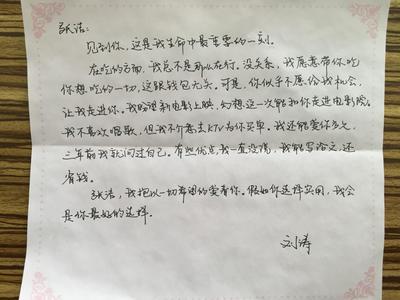 张浩:
见到你,这是我生命中最重要的一刻。
在吃的方面,我总不是那么在行。没关系,我愿意带你吃
你想吃的一切,这跟钱包无关。可是,你似乎不愿给我机会,
让我走进你。我盼望新电影上映,幻想这一次能和你走进电影院。
我不喜欢唱歌,但我不介意去KTV为你买单。我还能爱你多久,
三年前我就问过自己。有些优点,我一直没说,我能写论文,还
省钱。
张浩,我抱以一切希望的爱着你。假如你选择实用,我会
是你最好的选择。
刘涛